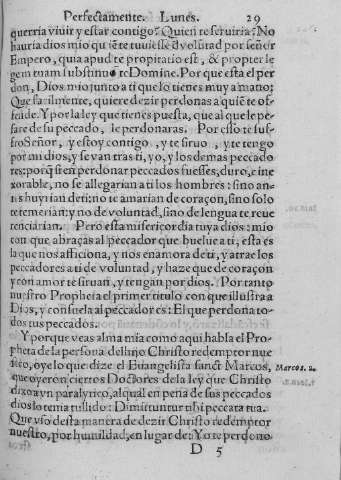 Perfectamente. Lunes. 29
querria viuir y estar contigo? Quien te seruiria? No
hauria dios mio quiẽ te tuuiesse d volũtad por señor
Empero, quia apud te propitiatio est, & propter le
gem tuam sustinui te Domine. Por que esta el per
don, Dios mio junto a ti que lo tienes muy a mano:
Que facilmente, quieres dezir perdonas a quiẽ te of-
fende. Y por la ley que tienes puesta, que al que le pe-
sare de su peccado, le perdonaras. Por esso te suf-
fro Señor, y estoy contigo, y te siruo, y te tengo
por mi dios, y se van tras ti, yo, y los demas peccado
res: porq̃ si en perdonar peccados fuesses, duro, e ine
xorable, no se allegarian a ti los hombres: sino an-
tes huyrian de ti: no te amarian de coraçon, sino solo
te temerian: y no de voluntad, sino de lengua te reue
renciarian. Pero esta misericordia tuya dios mio
con que abraças al peccador que buelue a ti, esta es
la que nos afficiona, y nos enamora de ti, y atrae los
peccadores a ti de voluntad, y haze que de coraçon
y con amor te siruan, y tengan por dios. Por tanto
nuestro Propheta el primer titulo con que illustra a
Dios, y consuela al peccador es: El que perdona to-
dos tus peccados.
Y porque veas alma mia como aqui habla el Pro-
pheta de la persona de Iesu Christo redemptor nue
stro, oye lo que dize el Euangelista sanct Marcos, Marcos. 2.
que oyeron ciertos Doctores de la ley que Christo
dixo a vn paralytico, al qual en pena de sus peccados
dios lo tenia tullido: Dimittuntur tibi peccata tua.
Que vso desta manera de dezir Christo redemptor
nuestro, por humildad, en lugar de: Yo te perdono
D 5